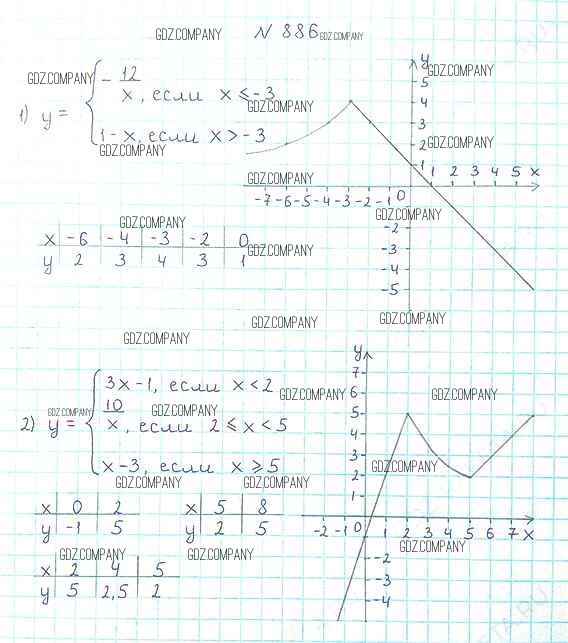 GDZ.COMPANY № 886 GDZ.COMPANY
GDZ.COMPANY
1) y = { -12/x, если x ≤ -3
GDZ.COMPANY
1-x, если x > -3
GDZ.COMPANY
y
GDZ.COMPANY
5
4
3
GDZ.COMPANY
2
1
GDZ.COMPANY
-7 -6 -5 -4 -3 -2 -1 0 1 2 3 4 5 x
GDZ.COMPANY
-2
-3
-4
-5
GDZ.COMPANY
x -6 -4 -3 -2 0
y 2 3 4 3 1
GDZ.COMPANY
GDZ.COMPANY GDZ.COMPANY
GDZ.COMPANY
2) GDZ.COMPANY y = { 3x-1, если x < 2
GDZ.COMPANY
10/x, если 2 ≤ x < 5
GDZ.COMPANY
x-3, если x ≥ 5
GDZ.COMPANY GDZ.COMPANY
x 0 2
y -1 5
x 5 8
y 2 5
GDZ.COMPANY GDZ.COMPANY
x 2 4 5
y 5 2,5 2
y
7
6
GDZ.COMPANY
5
4
3
GDZ.COMPANY
2
1
-2 -1 0 1 2 3 4 5 7 x
GDZ.COMPANY
-2
-3
-4